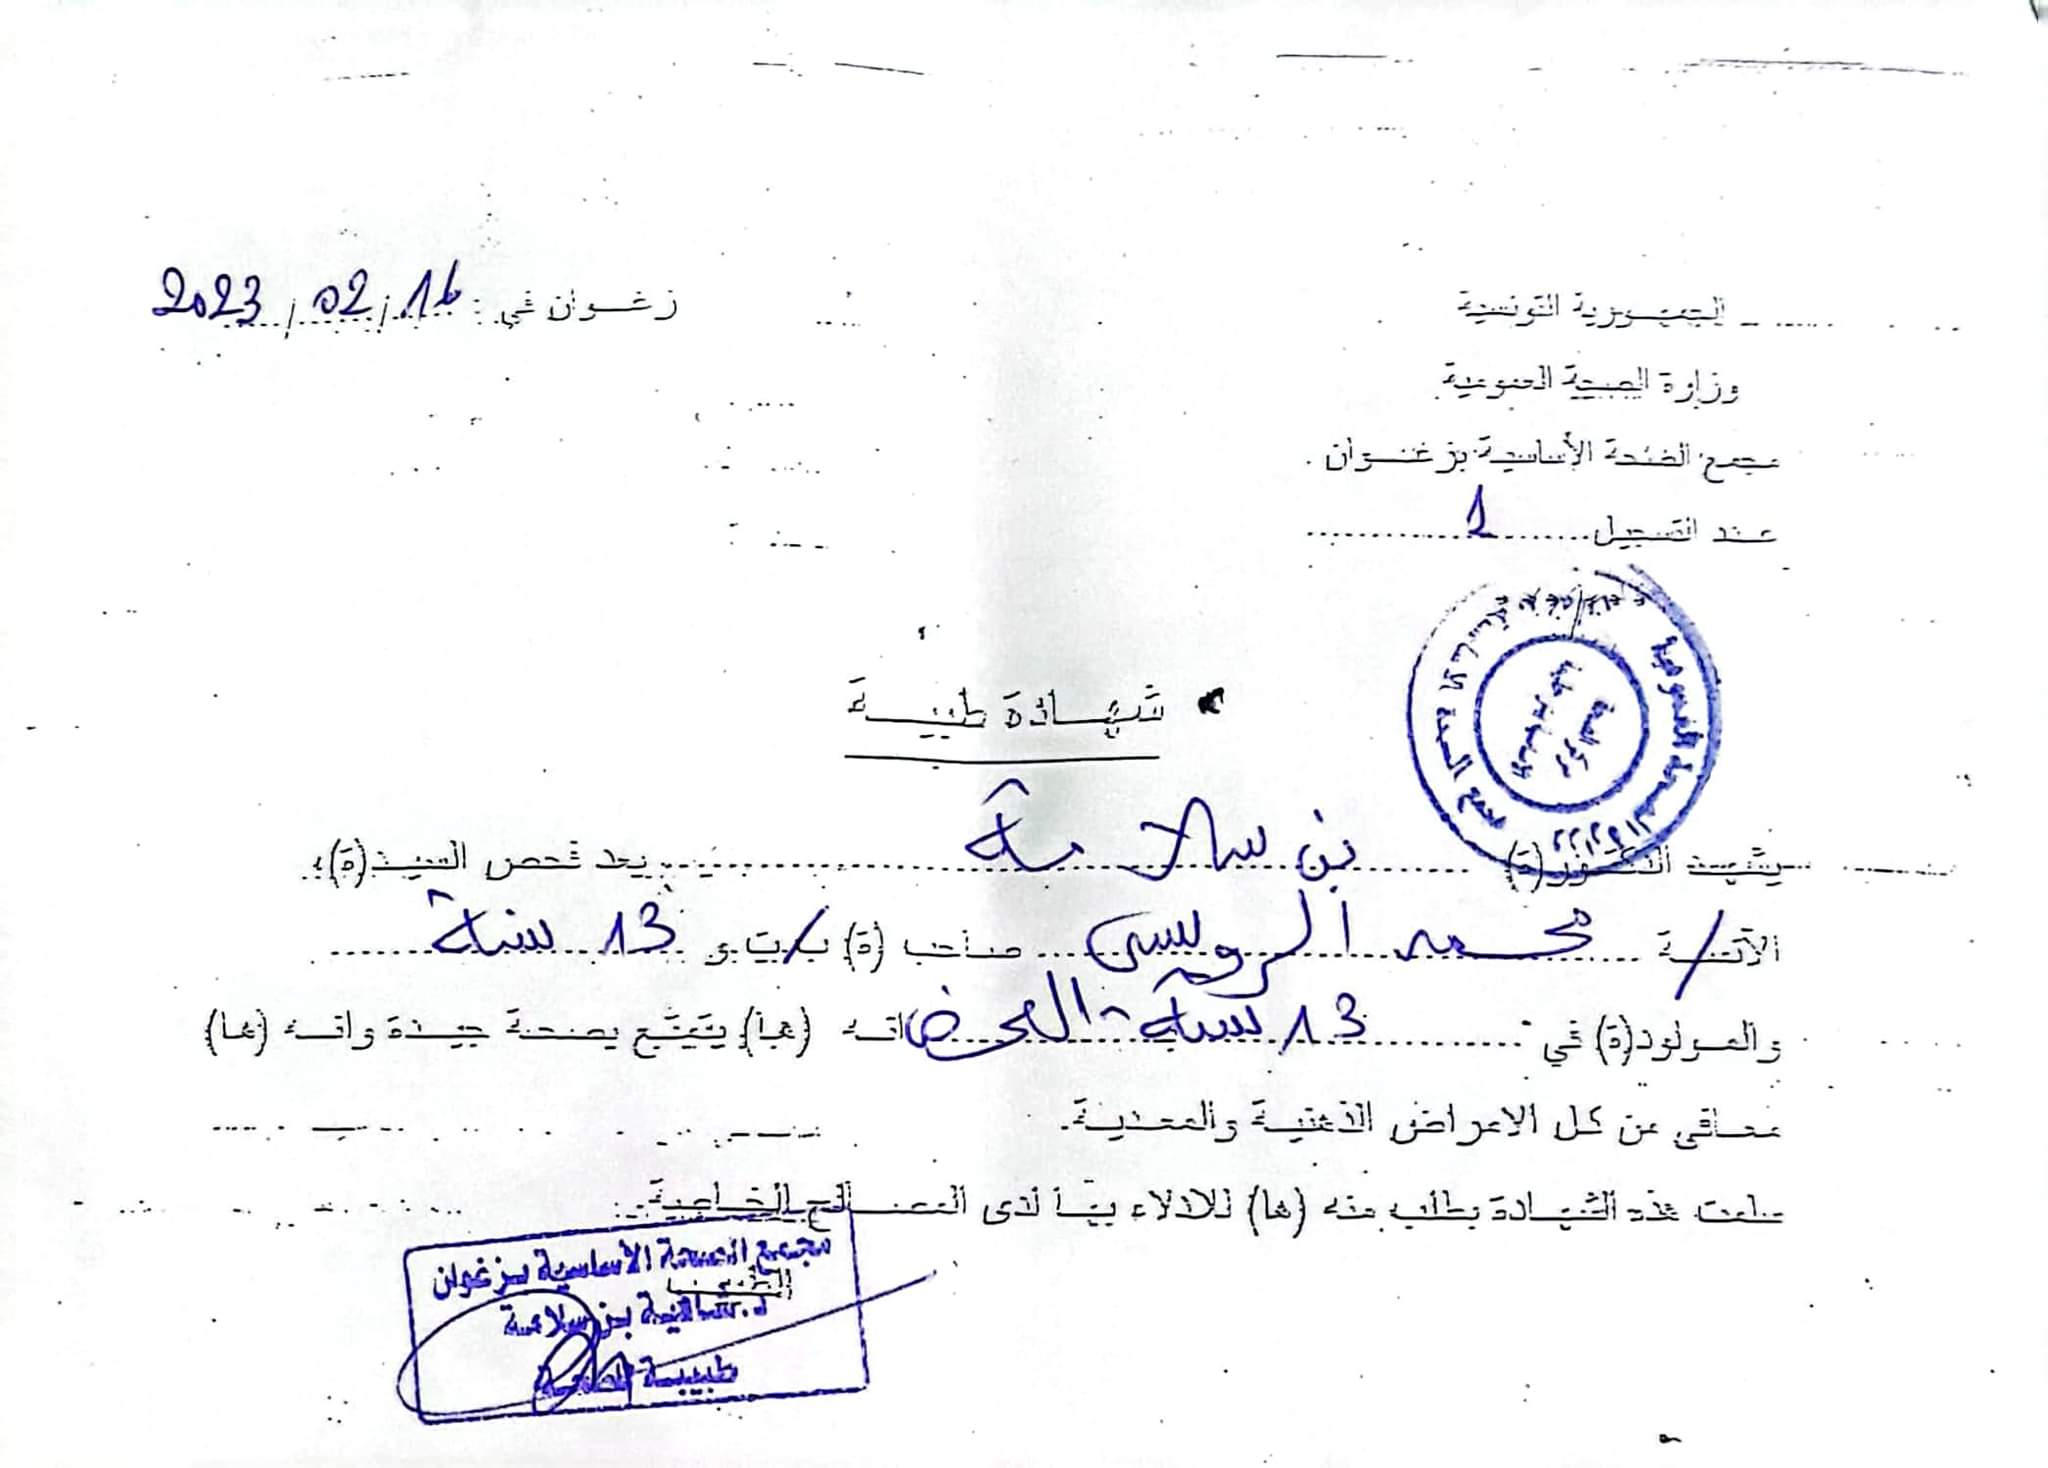 الجمهورية التونسية
وزارة الصحة العمومية
مجمع الصحة الأساسية بزغوان
زغوان في : 16/02/2023
عدد التسجيل 1
شهادة طبية
يشهد الدكتور(ة) بن سلامة بعد فحص السيد(ة)
الآنسة محمد الرويسي صاحب (ة) ب ت و 13 سنة
والمولود(ة) في 13 سنة انه (ها) يتمتع بصحة جيدة وانه (ها)
معافى من كل الامراض الذهنية والمعدية.
سلمت هذه الشهادة بطلب منه (ها) للادلاء بها لدى المصالح الخاصة
مجمع الصحة الأساسية بزغوان
الطبيب
بن سلامة
طبيبة
وزارة الصحة العمومية
مجمع الصحة الأساسية
مركز الصحة الأساسية